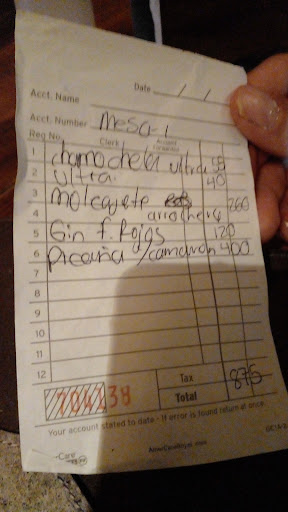 Date / /
Acct. Name
Acct. Number Mesa-1
Reg No. Clerk Account Forwarded
1 chamochela ultra 55
2 ultra 40
3 molcayete 260
4 arrachera
5 Gin f. Rojos 120
6 Picaña/camaron 400
7
8
9
10
11
12
704238 Tax
Total 875
Your account stated to date - If error is found return at once.